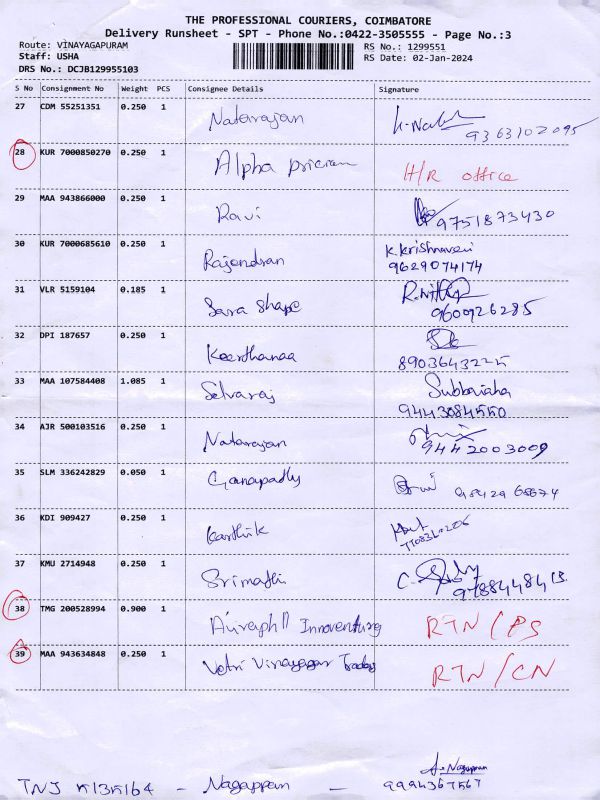 THE PROFESSIONAL COURIERS, COIMBATORE
Delivery Runsheet - SPT - Phone No.:0422-3505555 - Page No.:3
Route: VINAYAGAPURAM RS No.: 1299551
Staff: USHA RS Date: 02-Jan-2024
DRS No.: DCJB129955103
S No Consignment No Weight PCS Consignee Details Signature
27 CDM 55251351 0.250 1 Natarajan 9363102095
28 KUR 7000850270 0.250 1 Alpha H/R office
29 MAA 943866000 0.250 1 Ravi 9751873430
30 KUR 7000685610 0.250 1 Rajendran K.Krishnaveni
9629074174
31 VLR 5159104 0.185 1 Sara Shape 9600926285
32 DPI 187657 0.250 1 Keerthanaa
8903643225
33 MAA 107584408 1.085 1 Selvaraj Subbaiaha
9443084550
34 AJR 500103516 0.250 1 Natarajan 9442003009
35 SLM 336242829 0.050 1 Ganapadhy
36 KDI 909427 0.250 1 Karthik
37 KMU 2714948 0.250 1 Srimathi
38 TMG 200528994 0.900 1 RTN / PS
39 MAA 943634848 0.250 1 Vetri Vinayagar Traders RTN / CN
A. Nagappan
TNJ - Nagappan - 9994367567